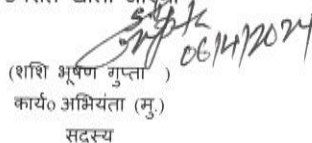 06/4/2024
(शशि भूषण गुप्ता )
कार्य० अभियंता (मु.)
सदस्य